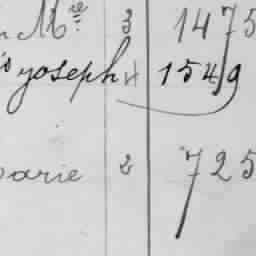 Mre 3 1475
is yoseph 4 1549
arie 2 725